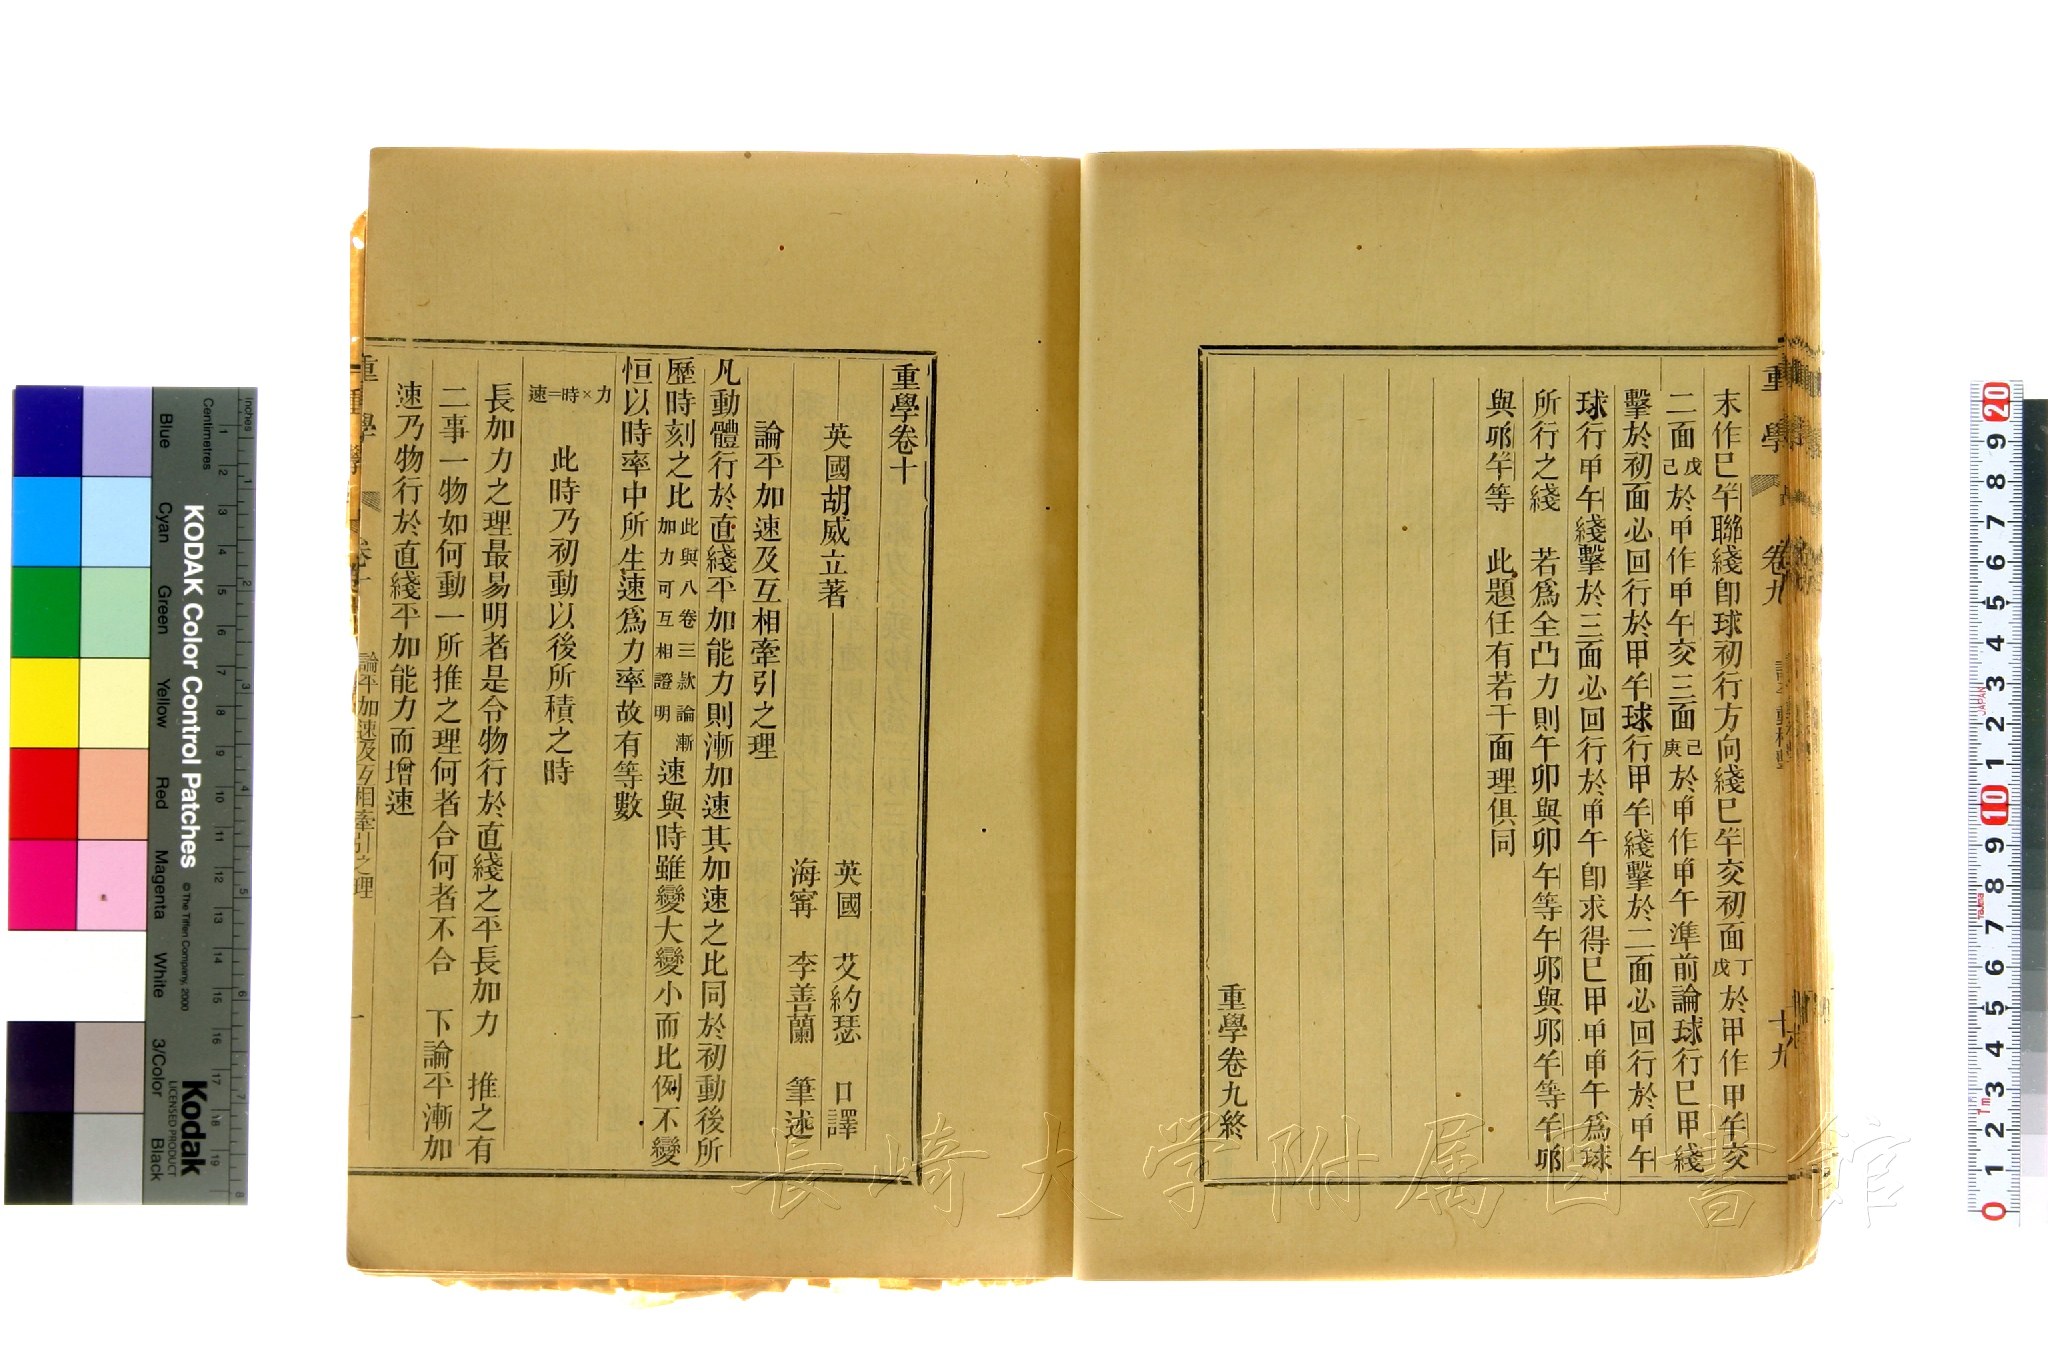 末作巳𠦝聯綫卽球初行方向綫巳𠦝交初面丁戊於甲作甲午交
二面戊己於甲作甲午交三面己庚於甲作甲午準前論球行巳甲綫
擊於初面必回行於甲午球行甲午綫擊於二面必回行於甲午
球行甲午綫擊於三面必回行於甲午卽求得巳甲甲甲午爲球
所行之綫　若爲全凸力則午卯與卯午等午卯與卯午等午卯
與卯午等　此題任有若干面理俱同
重學卷九終
重學　卷九　十九
重學卷十
英國胡威立著　英國　艾約瑟　口譯
海寧　李善蘭　筆述
論平加速及互相牽引之理
凡動體行於直綫平加能力則漸加速其加速之比同於初動後所
歷時刻之比此與八卷三款論漸加力可互相證明速與時雖變大變小而比例不變
恒以時率中所生速爲力率故有等數
速=時×力
此時乃初動以後所積之時
長加力之理最易明者是令物行於直綫之平長加力　推之有
二事一物如何動一所推之理何者合何者不合　下論平漸加
速乃物行於直綫平加能力而增速
重學　卷十　論平加速及互相牽引之理　一
長崎大学附属図書館
KODAK Color Control Patches
© The Tiffen Company, 2000
Kodak
LICENSED PRODUCT
Inches
Centimetres
Blue
Cyan
Green
Yellow
Red
Magenta
White
3/Color
Black
JAPAN